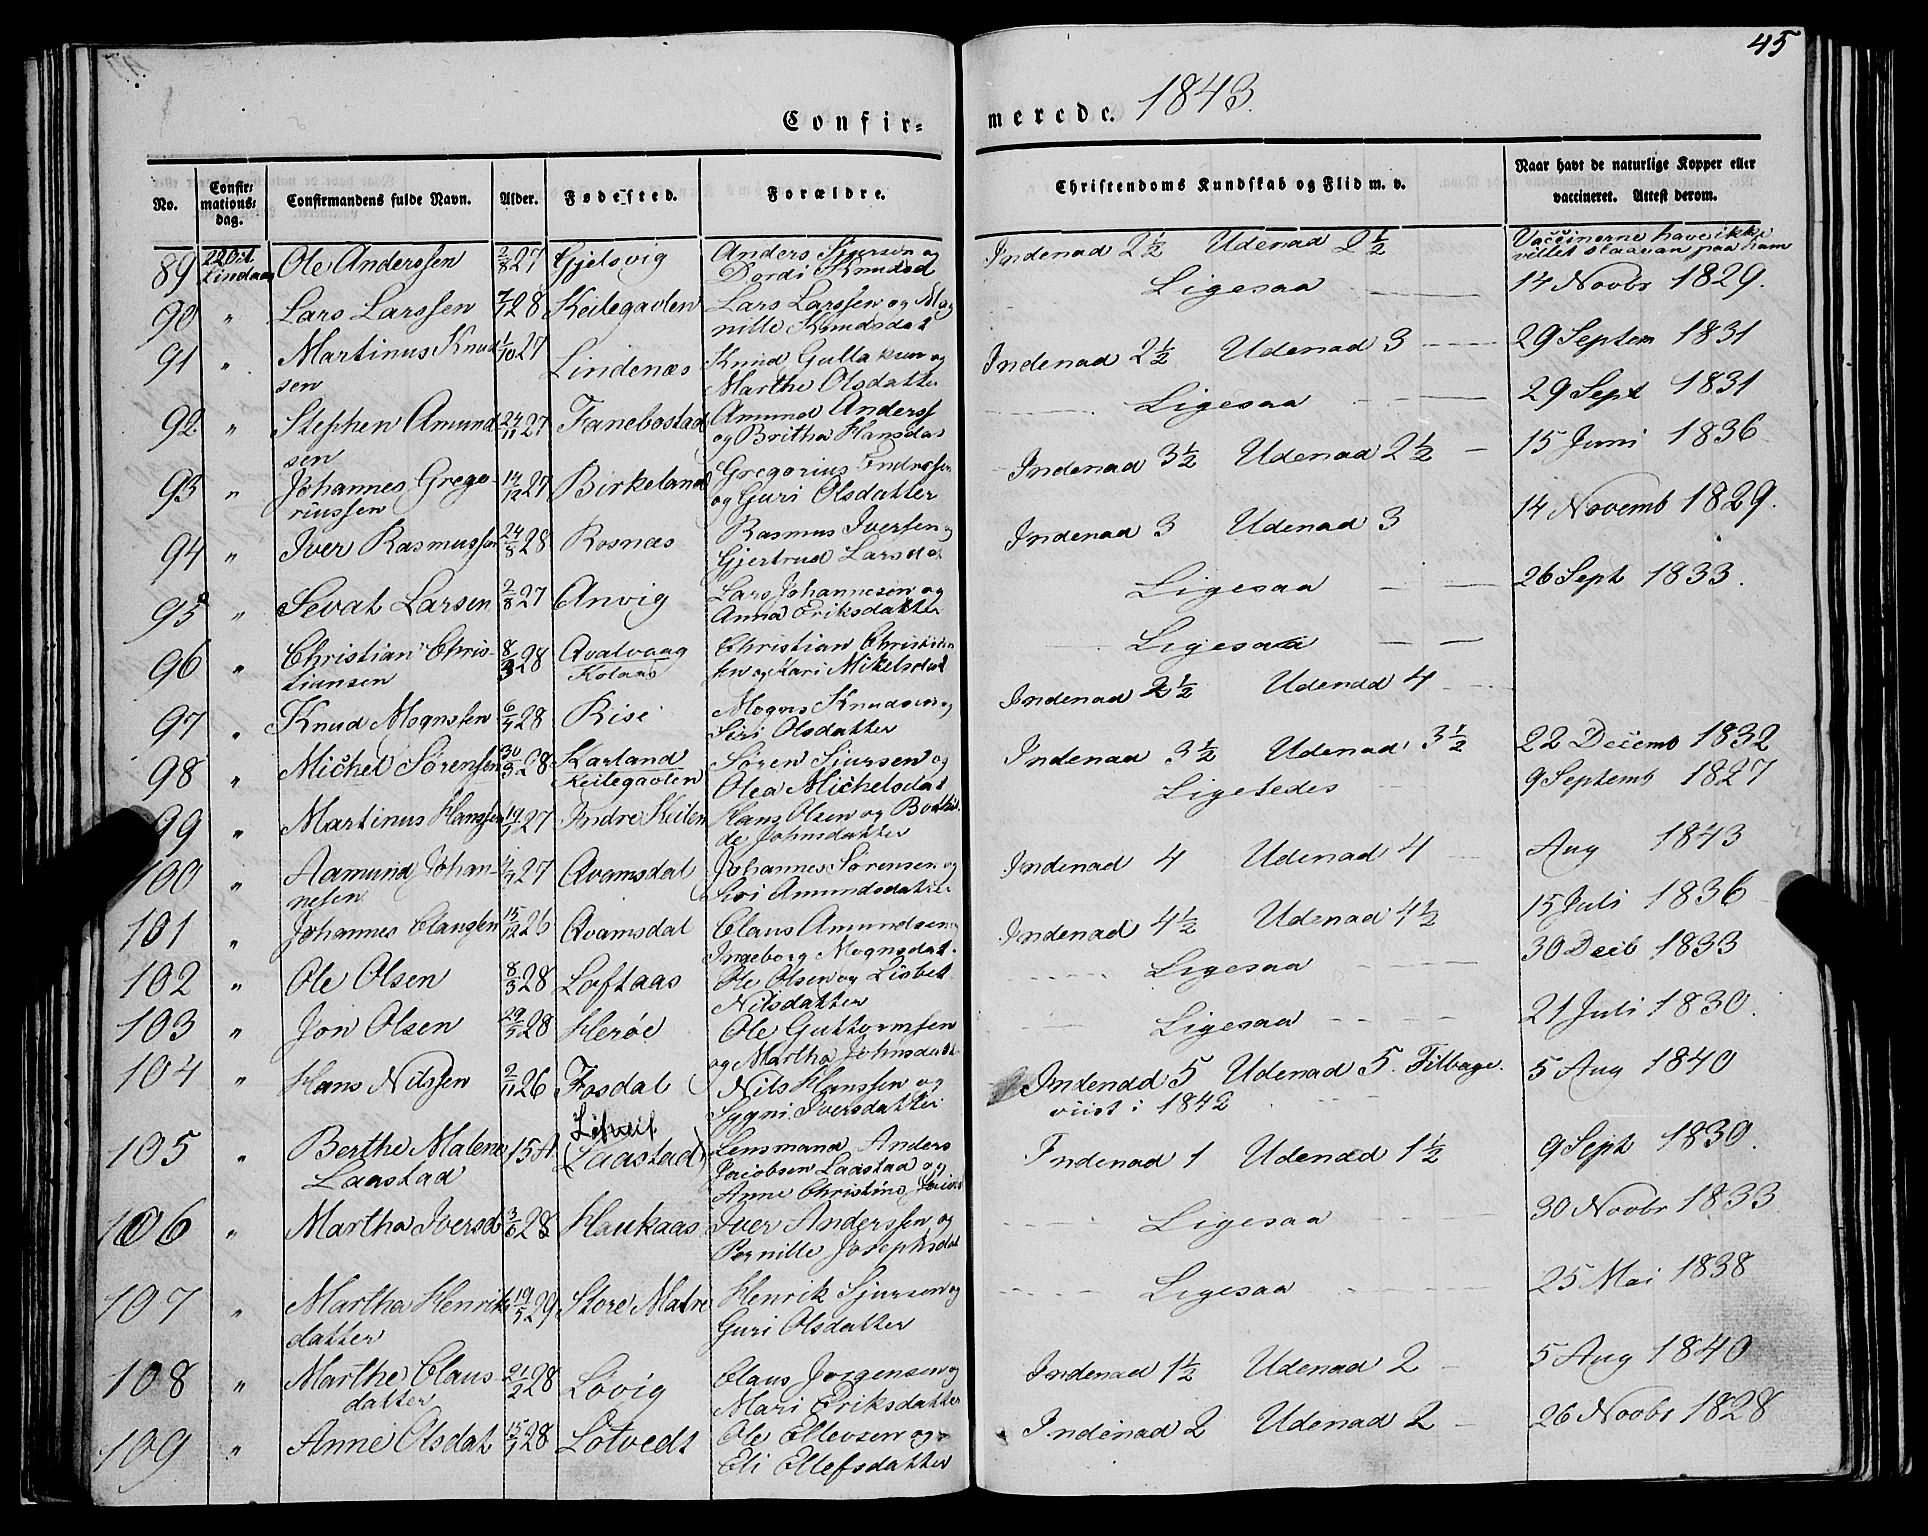 45
Confir= merede. 1843.
No. Confir= mations= dag. Confirmandens fulde Navn. Alder. Fødested. Forældre. Christendoms Kundskab og Flid m. v. Naar havt de naturlige Kopper eller vaccineret. Attest derom.
89 22 Oct Lindaas Ole Anderssen 2/8 27 Gjelsvig Anders Sjursen og Dordi Knudsd Indenad 2½ Udenad 2½ Vaccinerne have ikke villet slaa an paa ham
90 " Lars Larssen 7/1 28 Keilegavlen Lars Larssen og Magnille Knudsdat Ligesaa 14 Novbr 1829.
91 " Martinus Knudsen 1/10 27 Lindenæs Knud Gullaksen og Marthe Olsdatter Indenad 2½ Udenad 3 29 Septem 1831
92 " Stephen Amundsen 24/11 27 Fanebostad Amund Anderss og Britha Hansdat Ligesaa 29 Sept 1831
93 " Johannes Gregoriussen 14/12 27 Birkeland Gregorius Endresen og Guri Olsdatter Indenad 3½ Udenad 2½ 15 Juni 1836
94 " Iver Rasmussen 24/8 28 Rosnæs Rasmus Iversen og Gjertrud Larsdat Indenad 3 Udenad 3 14 Novemb 1829.
95 " Sevat Larsen 2/8 27 Anvig Lars Johannesen og Anna Eriksdatter Ligesaa 26 Sept 1833.
96 " Christian Christiansen 8/3 28 Qvalvaag Kolaas Christian Christiansen og Kari Mikelsdat Ligesaa
97 " Knud Mognssen 6/4 28 Risi Mogns Knudsen og Siri Olsdatter Indenad 2½ Udenad 4
98 " Michel Sörensen 30/3 28 Karland Keilegavlen Sören Siursen og Olea Michelsdat Indenad 3½ Udenad 3½ 22 Decemb 1832
99 " Martinus Hanssen 19/7 27 Indre Keilen Hans Olsen og Bothilde Johnsdatter Ligeledes 9 Septemb 1827
100 " Aamund Johannesen 4/7 27 Qvamsdal Johannes Sörensen og Siri Amundsdatter Indenad 4 Udenad 4 Aug 1843
101 " Johannes Claussen 15/12 26 Qvamsdal Claus Amundsen og Ingeborg Mognsdat. Indenad 4½ Udenad 4½ 15 Juli 1836
102 " Ole Olsen 8/3 28 Loftaas Ole Olsen og Lisbet Nilsdatter Ligesaa 30 Decb 1833
103 " Jon Olsen 29/5 28 Heröe Ole Guttormsen og Martha Johnsdatt Ligesaa 21 Juli 1830.
104 " Hans Nilssen 2/11 26 Fosdal Nils Hanssen og Sygni Iversdatter Indenad 5 Udenad 5. Tilbage viist i 1842 5 Aug 1840
105 " Berthe Malene Laastad 15 A. (Laastad) Lensmand Anders Jacobsen Laastad og Anne Christine Indenad 1 Udenad 1½ 9 Sept 1830.
106 " Martha Iversd 3/6 28 Haukaas Iver Anderssen og Pernille Josephsdat Ligesaa 30 Novbr 1833
107 " Martha Henriksdatter 19/5 29 Store Matre Henrik Sjursen og Guri Olsdatter Ligesaa 25 Mai 1838
108 " Marthe Clausdatter 21/2 28 Lövig Claus Jörgensen og Mari Eriksdatter Indenad 1½ Udenad 2 5 Aug 1840
109 " Anne Olsdat 15/1 28 Lotvedt Ole Ellevsen og Eli Ellefsdatter Indenad 2 Udenad 2 26 Novbr 1828